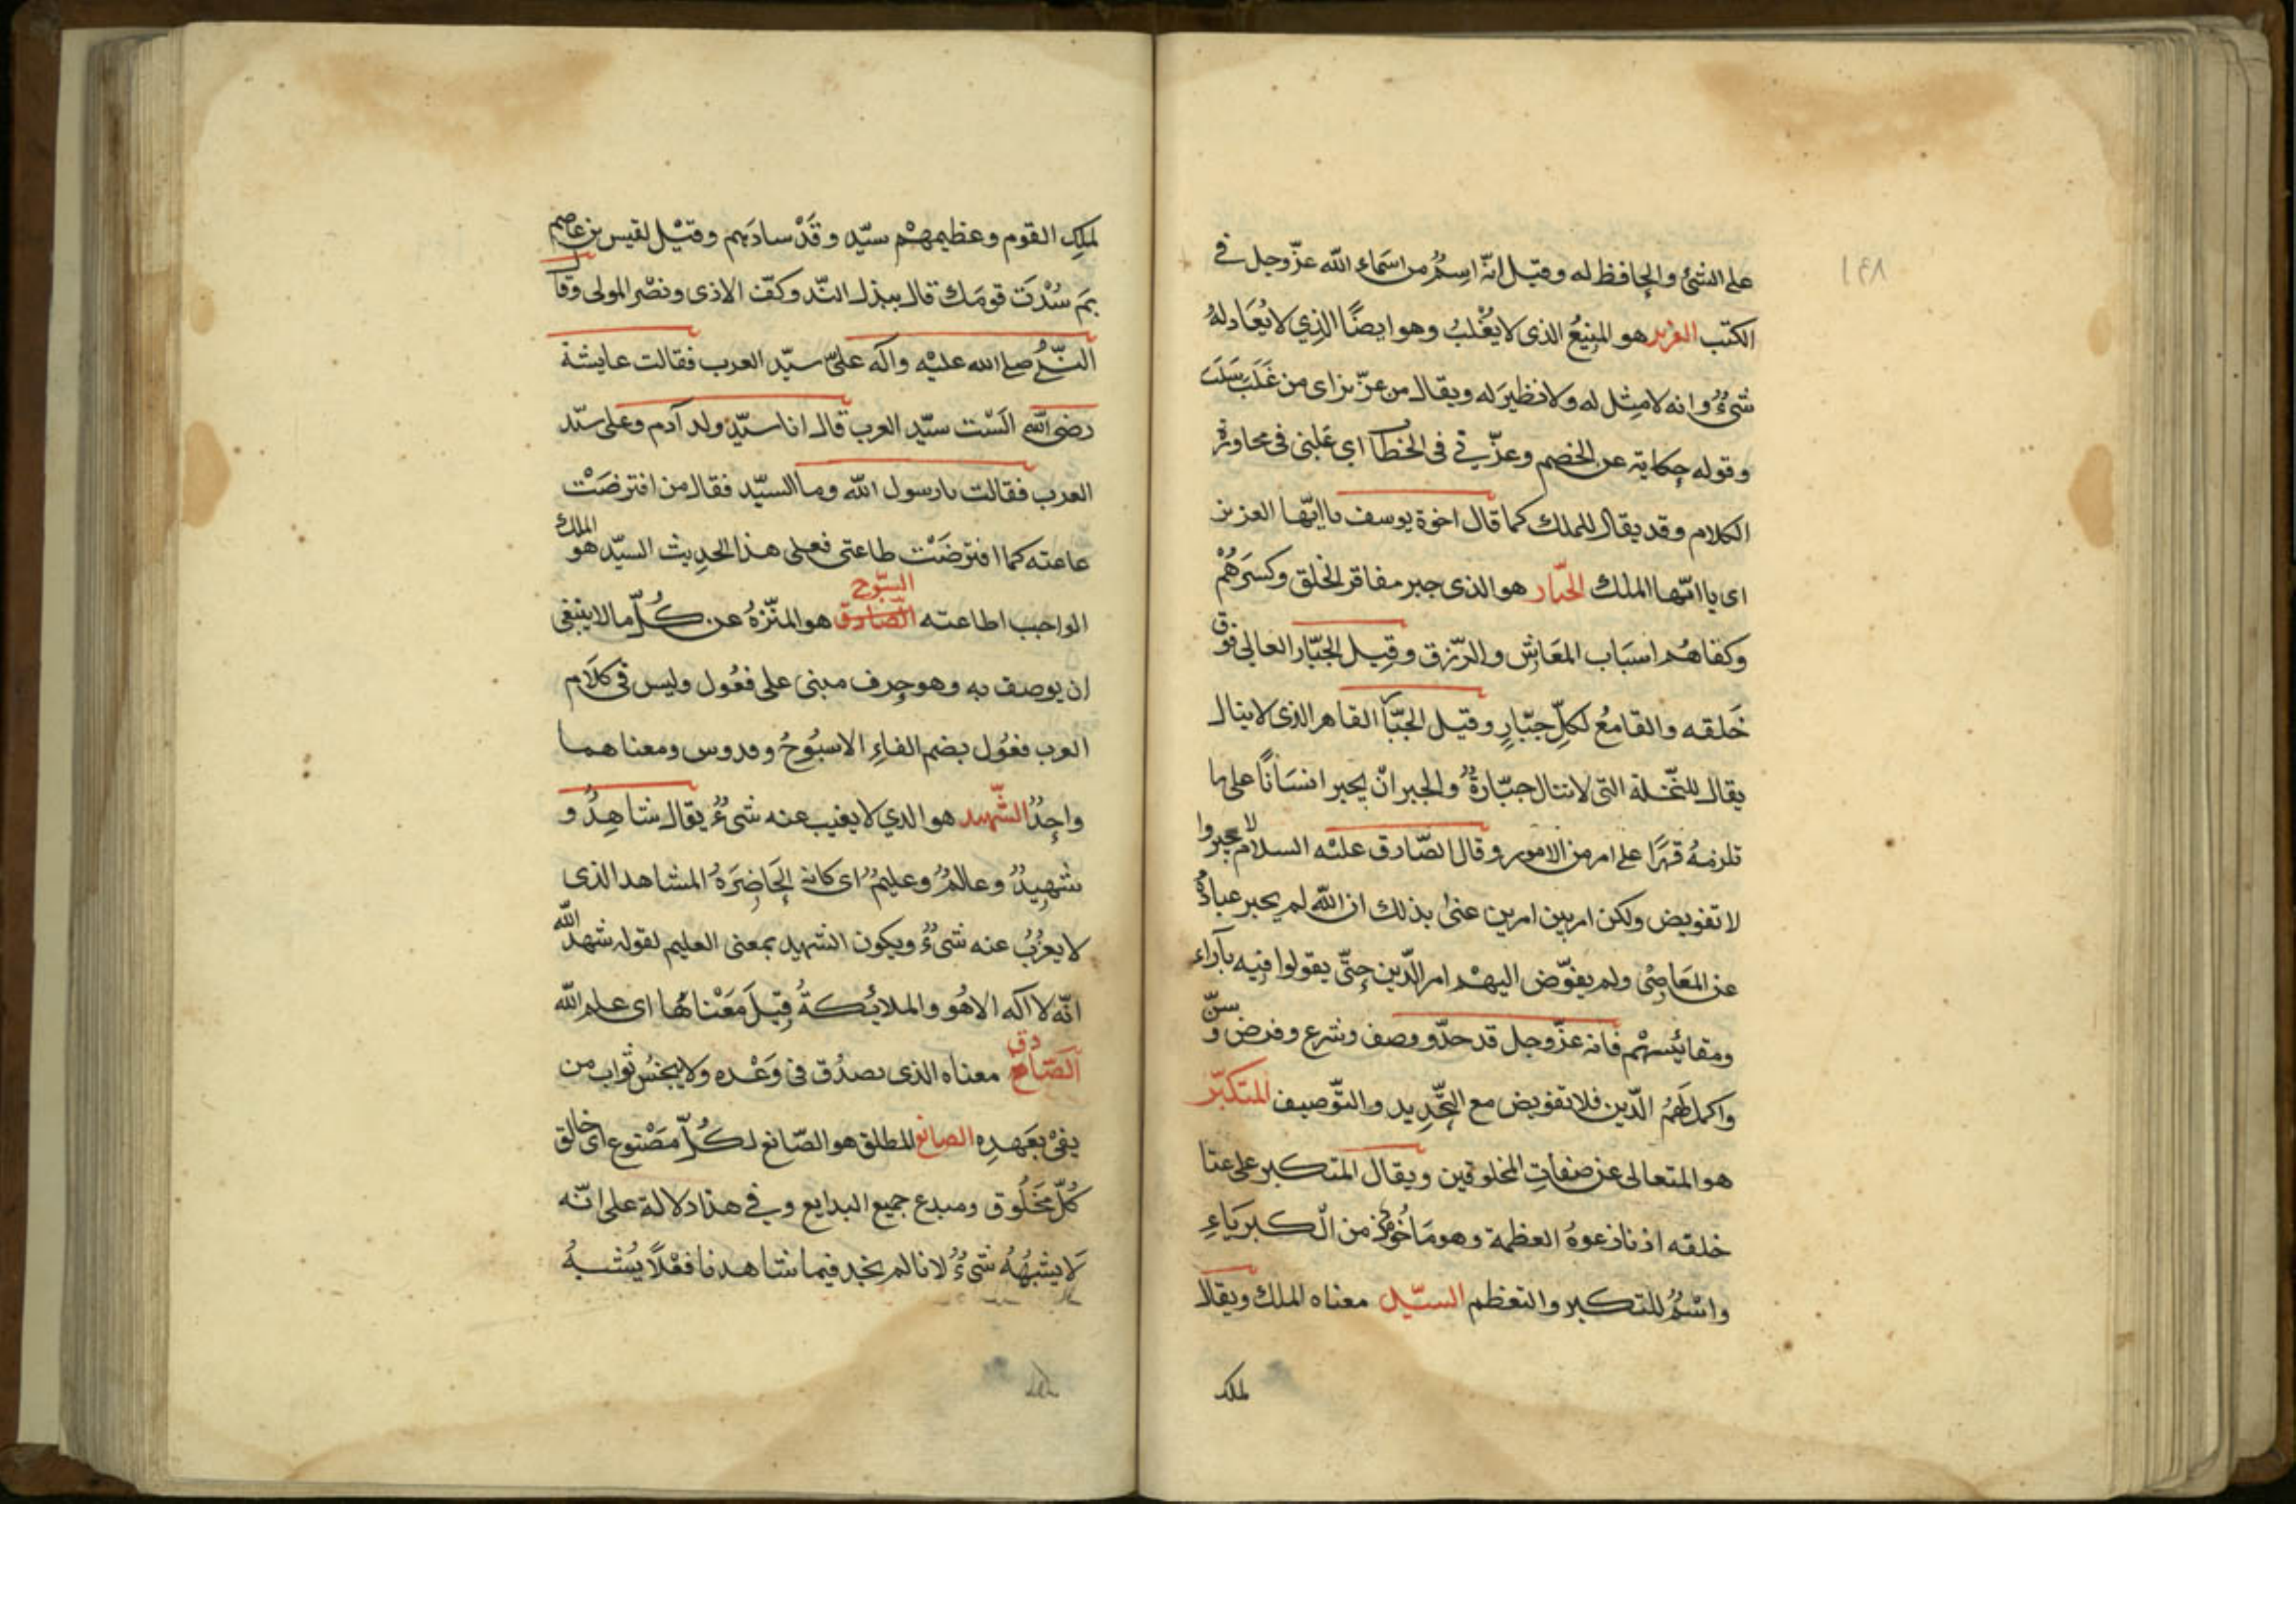 ١٤٨
على الشئ والحافظ له وقيل انّه اسمٌ من اسماء الله عزّوجل في
الكتب العزيز هو المنيعُ الذى لا يُغْلبُ وهو ايضًا الذِي لا يُعَادلهُ
شئٌ وانه لا مِثل له ولا نظيرَ له ويقال من عزّ بزاى من غَلَبَ سَلَبَ
وقوله حكاية عن الخصم وعزّنى فى الخطا اى غلبنى فى محاورة
الكلام وقد يقال للملك كما قال اخوة يوسف يا ايّها العزيز
اى يا ايّها الملك الجبّار هو الذى جبر مفاقر الخلق وكسَرَهُمْ
وكفاهُم اسبَاب المعَاشِ والرّزق وقيل الجبّار العالى فوق
خَلقه والقامعُ لكلّ جبّارٍ وقيل الجبّا القاهر الذى لا ينال
يقال للنّخلة التى لا تنال جبّارةٌ والجبر انْ يجبر انسَانًا على ما
تلزمهُ قهرًا على امر من الامور وقال الصّادق عليْه السلام لا جبر وا
لا تفويض ولكن امر بين امرين عنىٰ بذلك ان الله لم يجبر عبادهُ
عن المعَاصى ولم يفوّض اليهْم امر الدّين حتّى يقولوا فيه بآراء
ومقائيسهْم فانه عزّوجل قد حدّ ووصف وشرع وفرض و سنّ
واكمل لهُم الدّين فلا تفويض مع التّحديد والتّوصيف المتكبّر
هو المتعالى عن صفاتِ المخلوقين ويقال المتكبر على عتا
خلقه اذ نازعوهُ العظمة وهو مَاخُوذ من الكبريَاءِ
واسْمٌ للتكبر والتعظم السيّد معناه الملك ويقال
لملك
لملكِ القوم وعظيمهْم سيّد وقَدْ سادَهم وقيْل لقيس بن عاصم
بمَ سُدْتَ قومَك قال ببذل النّد وكفّ الاذى ونصْر المولى وقال
النّبىُّ صلى الله عليْه وآله علىّ سيّد العرب فقالت عايشة
رضى الله اَلسْت سيّد العرب قال انا سيّد ولد آدم وعلى سيّد
العرب فقالت يا رسول الله وما السيّد فقال من افترضَتْ
طاعته كما افترضَتْ طاعتى فعلى هذا الحديث السيّد هو الملك
الواجب اطاعته الصّادق السبّوح هو المنّزهُ عن كُلّ ما لا ينبغى
ان يوصف به وهو حرف مبنى على فعُول وليس فى كلَام
العرب فعُول بضم الفاءِ الا سبُوحٌ وقدوس ومعناهما
واحِدٌ الشّهيد هو الذي لا يغيب عنه شىءٌ يقال شاهِدٌ و
شهيدٌ وعالمٌ وعليمٌ اى كانه الحَاضِرَهُ المشاهد الذى
لا يعزُبُ عنه شىءٌ ويكون الشهيد بمعنى العليم لقوله شهد الله
انّه لا اله الا هُو والملائكةُ قيلَ مَعْناهُا اى علم الله
الصّادق معناه الذى يصدُق فى وَعْده ولا يبخسُ ثواب من
يفىْ بعَهدِه الصانع المطلق هو الصّانع لكُلّ مصْنوع اى خالق
كُلّ مَخْلُوق ومبدع جميع البدايع وفى هذا دلالة على انّه
لَا يشبهُهُ شىءٌ لانا لم نجد فيما شاهدنا فعْلًا يُشبهُ